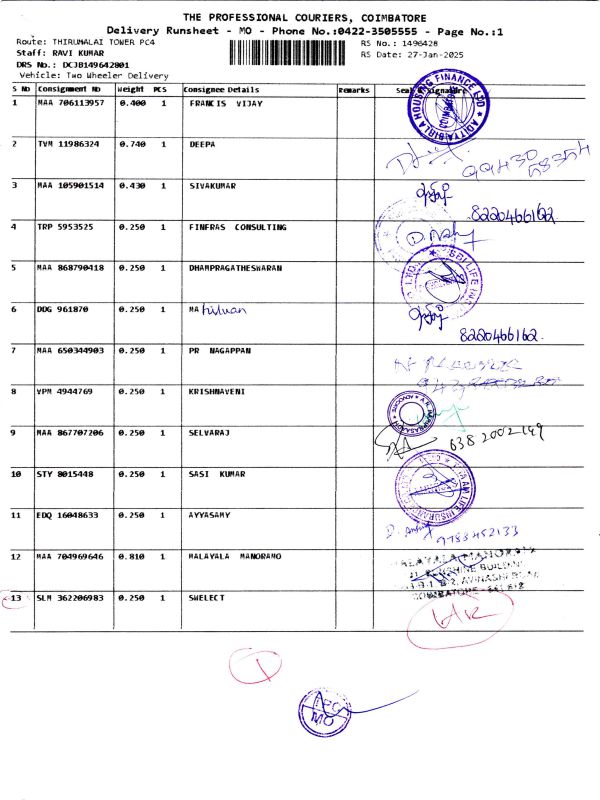 THE PROFESSIONAL COURIERS, COIMBATORE
Delivery Runsheet - MO - Phone No.:0422-3505555 - Page No.:1
Route: THIRUMALAI TOWER PC4
RS No.: 1496428
Staff: RAVI KUMAR
RS Date: 27-Jan-2025
DRS No.: DCJB149642801
Vehicle: Two Wheeler Delivery
S No Consignment No Weight PCS Consignee Details Remarks
1 MAA 706113957 0.400 1 FRANCIS VIJAY
ADITYA BIRLA HOUSING FINANCE LTD
2 TVM 11986324 0.740 1 DEEPA
99430
58354
3 MAA 105901514 0.430 1 SIVAKUMAR
8220466162
4 TRP 5953525 0.250 1 FINFRAS CONSULTING
5 MAA 868790418 0.250 1 DHAMPRAGATHESWARAN
SBI LIFE
6 DDG 961870 0.250 1 MA
8220466162
7 MAA 650344903 0.250 1 PR NAGAPPAN
8 VPM 4944769 0.250 1 KRISHNAVENI
9 MAA 867707206 0.250 1 SELVARAJ
638 2002149
10 STY 8015448 0.250 1 SASI KUMAR
11 EDQ 16048633 0.250 1 AYYASAMY
9788452133
12 MAA 704969646 0.810 1 MALAYALA MANORAMO
MALAYALA MANORAMA
SUNSHINE BUILDING
AVINASHI ROAD
COIMBATORE
13 SLM 362206983 0.250 1 SWELECT
1
TPC
MO